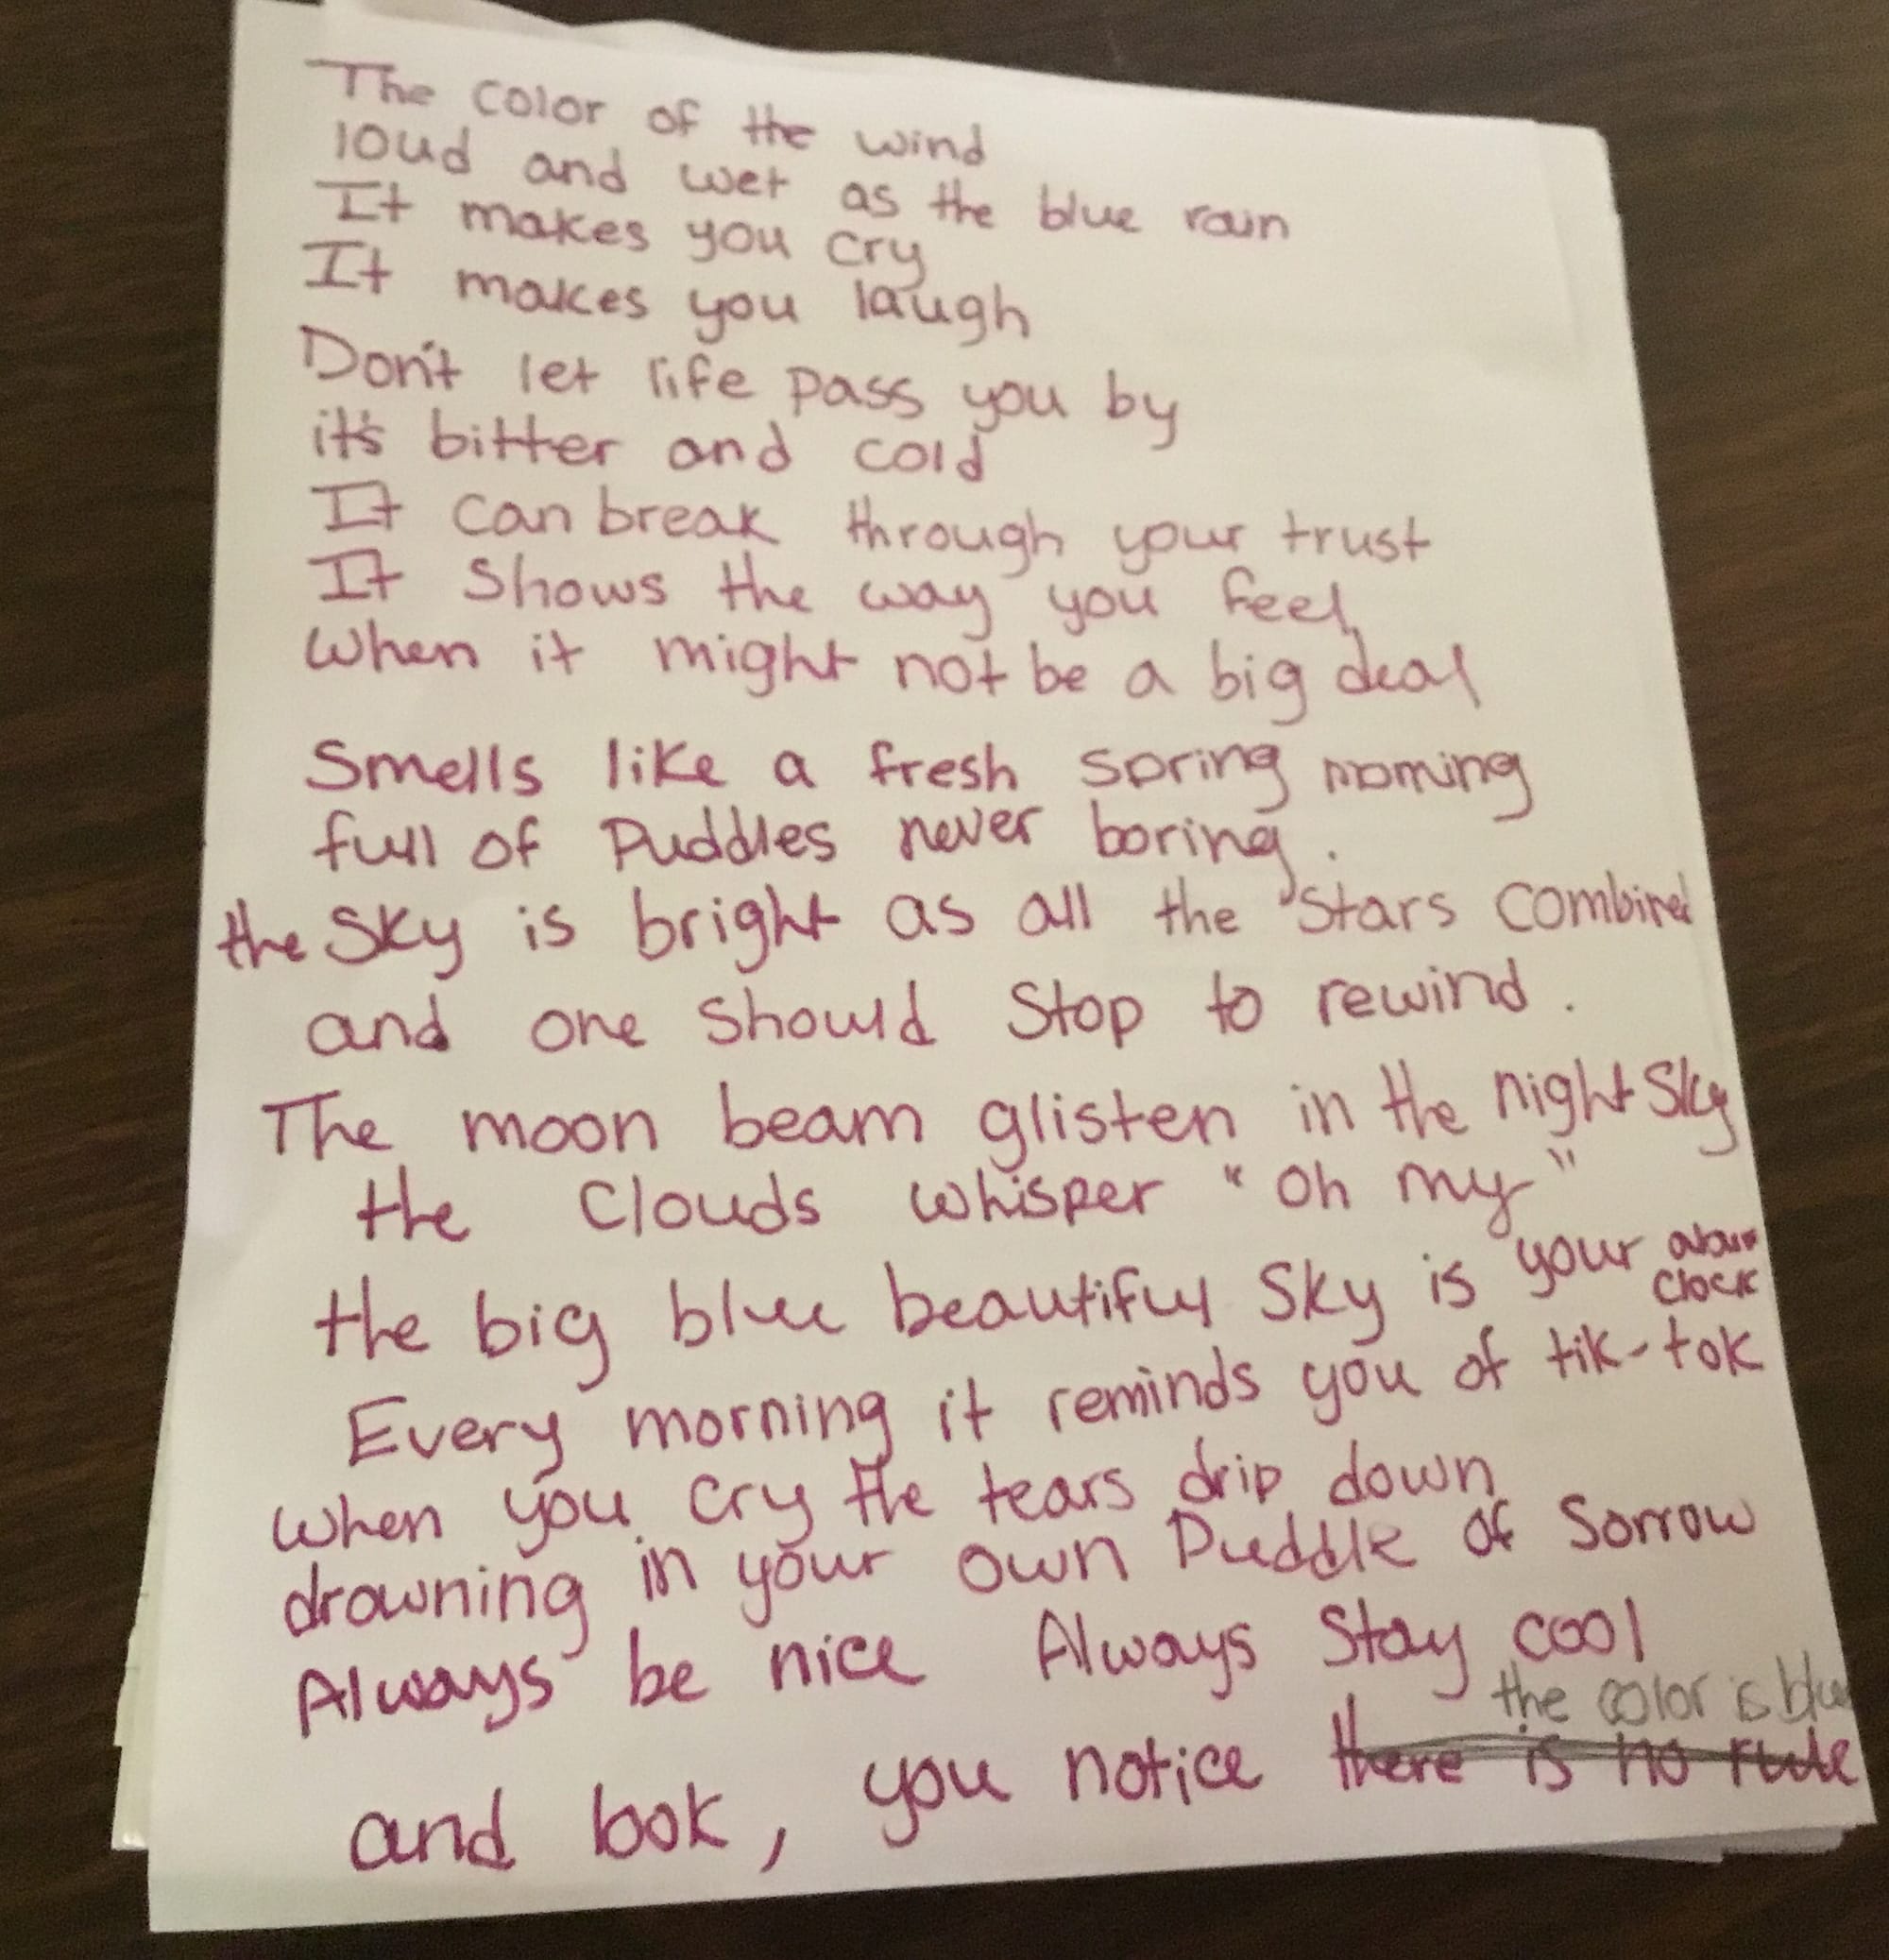 The color of the wind
loud and wet as the blue rain
It makes you cry
It makes you laugh
Don't let life pass you by
it's bitter and cold
It can break through your trust
It shows the way you feel
When it might not be a big deal
Smells like a fresh spring morning
full of Puddles never boring.
the Sky is bright as all the Stars combined
and one should Stop to rewind.
The moon beam glisten in the night Sky
the Clouds whisper "oh my"
the big blue beautiful Sky is your alarm
clock
Every morning it reminds you of tik-tok
when you cry the tears drip down
drowning in your own Puddle of Sorrow
Always be nice Always Stay cool
the color is blue
and look, you notice there is no rule